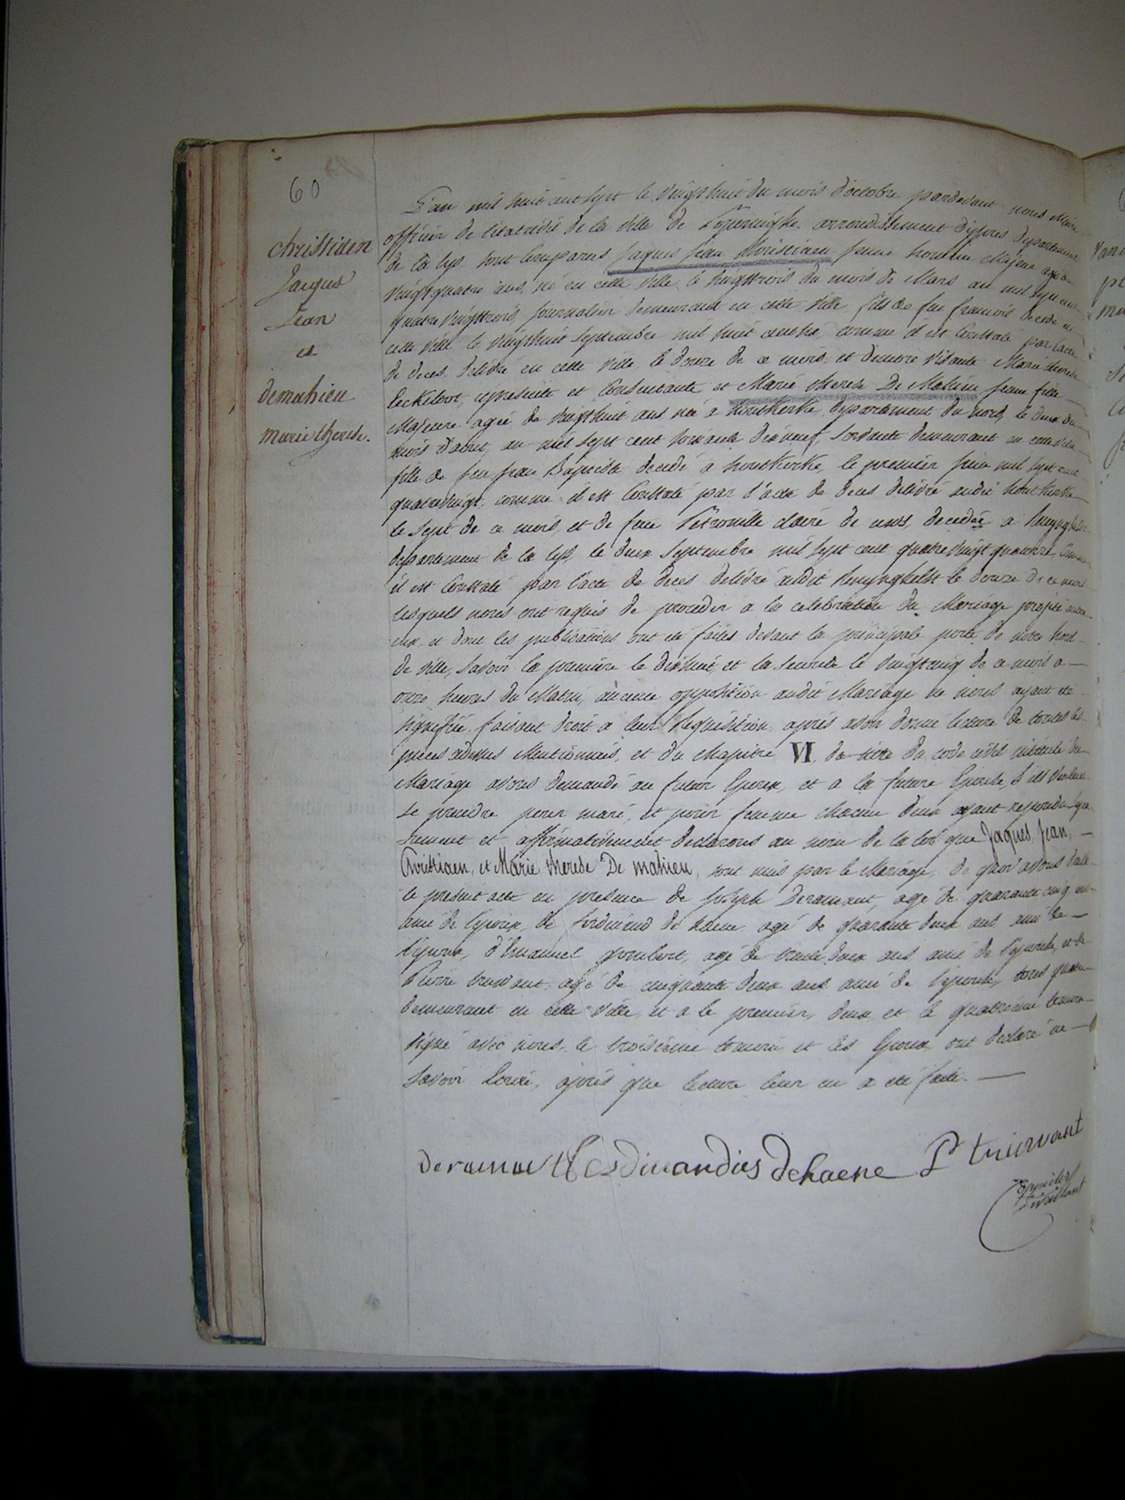 60
Christiaen
Jacques
Jean
et
demahieu
marie therese.
L'an mil huit cent sept le vingthuit du mois d'octobre pardevant nous Maire
officier de l'etat civil de la ville de Poperinghe arrondissement d'ypres Departement
de la lys sont Comparus Jaques Jean Christiaen jeune homme Majeur agé de
vingtquatre ans, né en cette ville le vingttrois du mois de Mars an mil sept cent
quatre vingttrois, journalier demeurant en cette ville fils de feu francois decedé en
cette ville le vingthuit septembre mil huit cent comme il est Constaté par l'acte
de deces delivré en cette ville le douze de ce mois, et de Marie therese
presente et Consentante et Marie therese De Mahieu jeune fille
Majeure agée de vingthuit ans née à houtkerke, departement du nord, le deux du
mois d'aout, an mil sept cent soixante dixneuf, servante demeurant en cette ville
fille de feu jean Baptiste decedé à houtkerke, le premier juin mil sept cent
quatrevingt comme il est Constaté par l'acte de deces delivré audit houtkerke
le sept de ce mois, et de feue Petronille claire de decedée a Reninghelst
departement de la lys, le deux Septembre mil sept cent quatre vingt quatorze, comme
il est Constaté par l'acte de deces delivré audit Reninghelst le douze de ce mois
lesquels nous ont requis de proceder a la celebration du Mariage projetté entre
eux et dont les publications ont été faites devant la principale porte de notre hotel
de ville, savoir la premiere le dixhuit et la seconde le vingtcinq de ce mois a
onze heures du Matin, aucune opposition audit Mariage ne nous ayant été
signifiée, faisant droit a leur requisition, après avoir donné lecture de toutes les
pieces cidessus Mentionnées, et du chapitre VI, du titre du code civil intitulé du
Mariage avons demandé au futur Epoux, et a la future Epouse, s'ils veulent
se prendre pour mari, et pour femme chacun d'eux ayant repondu separement
et affirmativement declarons au nom de la loi que Jaques Jean,
Christiaen, et Marie therese De mahieu, sont unis par le Mariage, de quoi avons dressé
le present acte en presence de Joseph Deramaut, agé de quarante cinq ans
ami de l'epoux, de ferdinand de haene agé de quarante deux ans ami de
l'epoux, d'Emanuel agé de trente deux ans ami de l'epouse, et de
Pierre truwant, agé de cinquante deux ans ami de l'epouse, tous quatre
demeurant en cette ville et a le premier, deux et le quatrieme temoin
signé avec nous, le troisieme temoin et les Epoux ont declaré ne
savoir Ecrire, après que lecture leur en a été faite.
deramaut ferdinandus dehaene P truwant